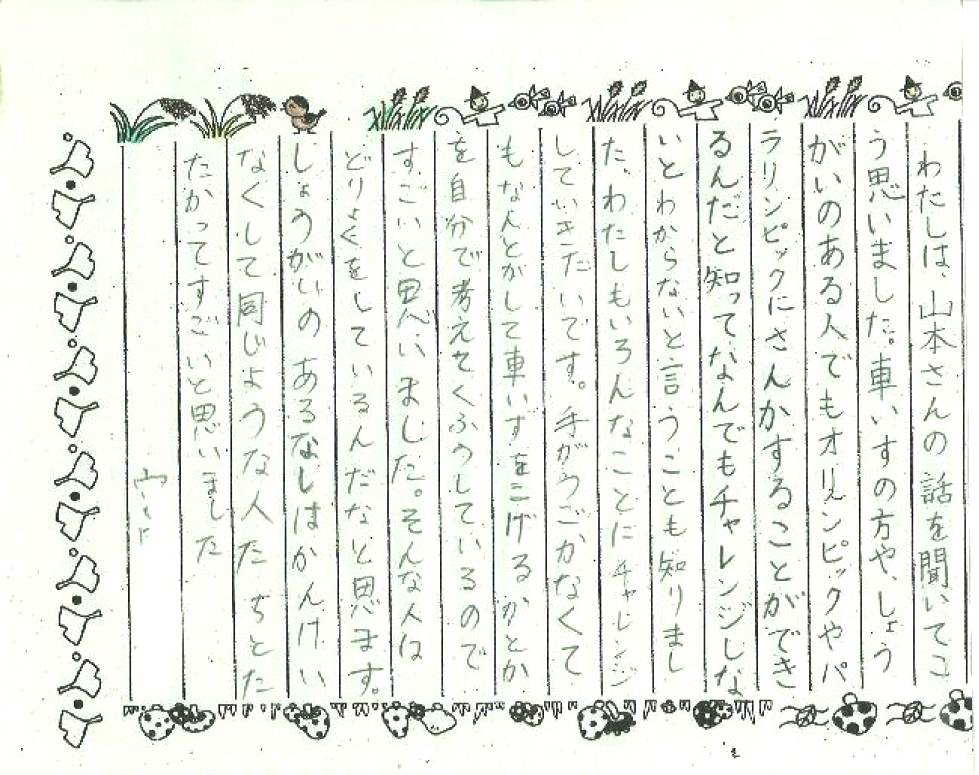 わたしは、山本さんの話を聞いてこ
う思いました。車いすの方や、しょう
がいのある人でもオリンピックやパ
ラリンピックにさんかすることができ
るんだと知ってなんでもチャレンジしな
いとわからないと言うことも知りまし
た、わたしもいろんなことにチャレンジ
していきたいです。手がうごかなくて
もなんとかして車いすをこげるかとか
を自分で考えてくふうしているので
すごいと思いました。そんな人は
どりょくをしているんだなと思ます。
しょうがいのあるなしはかんけい
なくして同じような人たちとた
たかってすごいと思いました